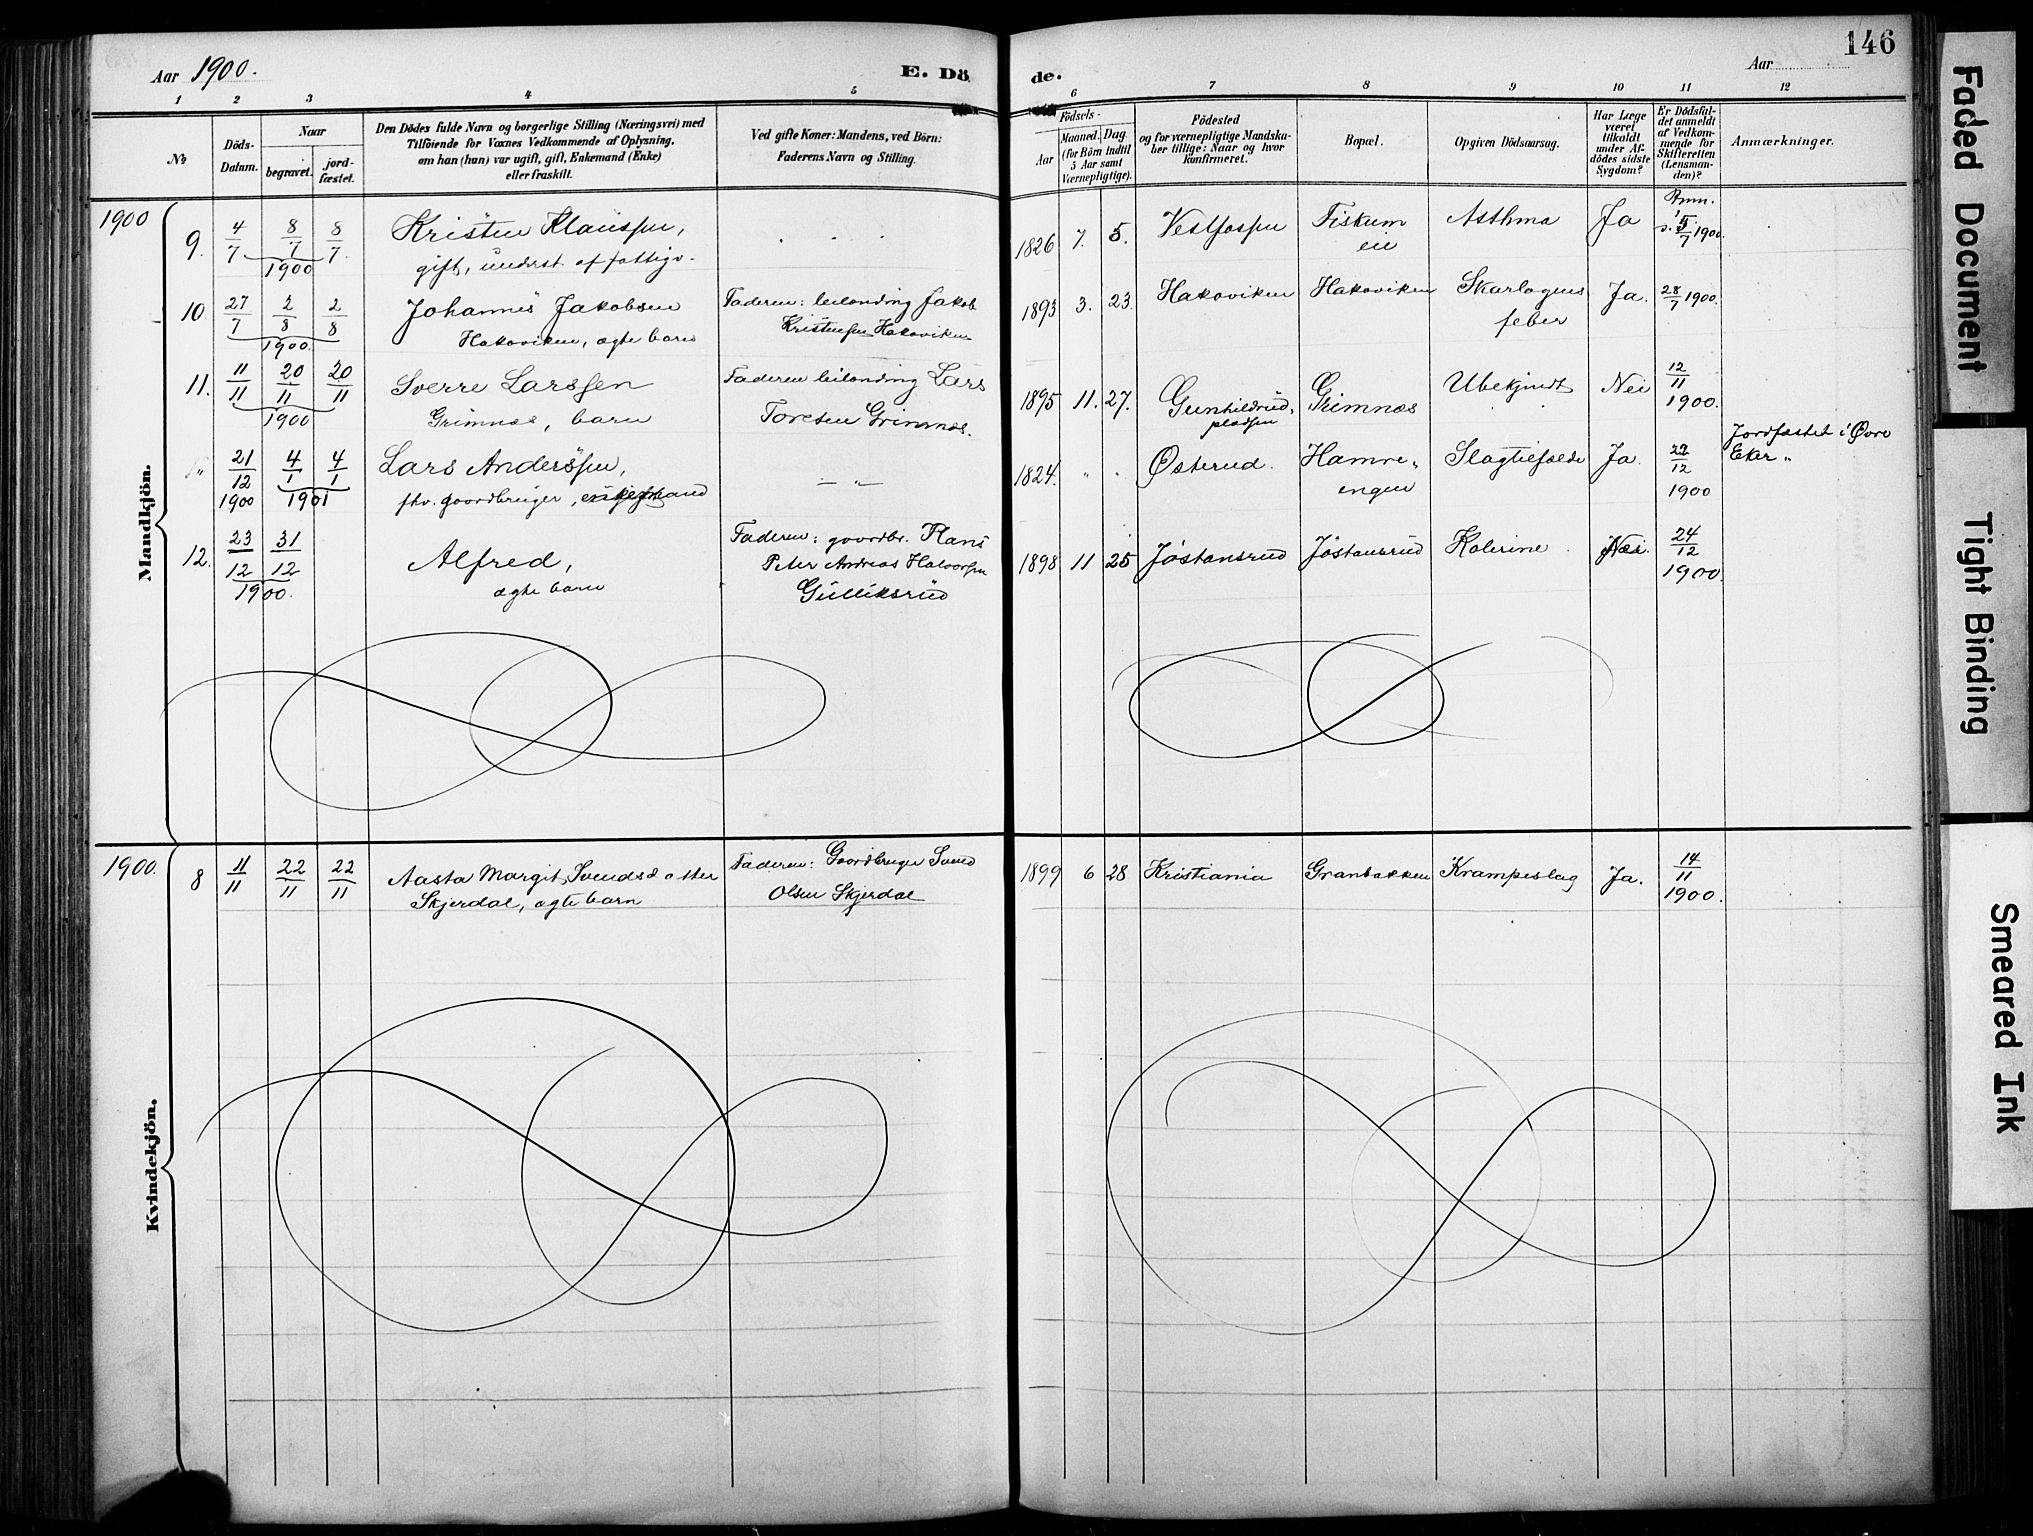 146
Aar 1900.
E. Dö
de.
Aar
1 2 3 4 5 6 7 8 9 10 11 12
No
Döds-
Datum.
Naar
begravet.
jord-
fæstet.
Den Dödes fulde Navn og borgerlige Stilling (Næringsvei) med
Tilföiende for Voxnes Vedkommende af Oplysning,
om han (hun) var ugift, gift, Enkemand (Enke)
eller fraskilt.
Ved gifte Koner: Mandens, ved Börn:
Faderens Navn og Stilling.
Födsels-
Aar
Maaned. Dag
(for Börn indtil
5 Aar samt
Værnepligtige).
Födested
og for værnepligtige Mandska-
ber tillige: Naar og hvor
konfirmeret.
Bopæl.
Opgiven Dödsaarsag.
Har Læge
været
tilkaldt
under Af-
dödes sidste
Sygdom?
Er Dödsfal-
det anmeldt
af Vedkom-
mende for
Skifteretten
(Lensman-
den)?
Anmærkninger.
Mandkjön.
1900
9. 4/7 8/7 8/7
1900
Kristen Klaussen,
gift, underst. af fattigv.
1826 7. 5. Vestfossen
Fiskum
eie
Asthma
Ja
Anm.
5/7 1900.
10 27/7 2/8 2/8
1900.
Johannes Jakobsen
Hakaviken, ægte barn
Faderen: leilending Jakob
Kristensen Hakaviken
1893 3. 23 Hakaviken Hakaviken
Skarlagens
feber
Ja. 28/7 1900.
11. 11/11 20/11 20/11
1900
Sverre Larssen
Grimnæs, barn
Faderen leilending Lars
Toresen Grimnæs.
1895 11. 27.
Gunhildrud,
pladsen
Grimnæs
Ubekjendt Nei
12/11
1900.
" 21/12 4/1 4/1
1900 1901
Lars Anderssen,
fhv. gaardbruger, enkemand
— " —
1824. " . Østerud.
Hamre-
engen
Slagtilfælde Ja.
22/12
1900
Jordfæstet i Øvre
Eker "
12. 23/12 31/12
1900.
Alfred,
ægte barn
Faderen: gaardbr. Hans
Peter Andreas Halvorsen
Gulliksrud
1898 11 25 Jøstansrud Jøstansrud Kolerine Nei.
24/12
1900.
Kvindekjön.
1900.
8 11/11 22/11 22/11
Aasta Margit Svendsdatter
Skjerdal, ægte barn
Faderen: Gaardbruger Svend
Olsen Skjerdal
1899 6 28 Kristiania Granbakken Krampeslag Ja.
14/11
1900.
Faded Document
Tight Binding
Smeared Ink